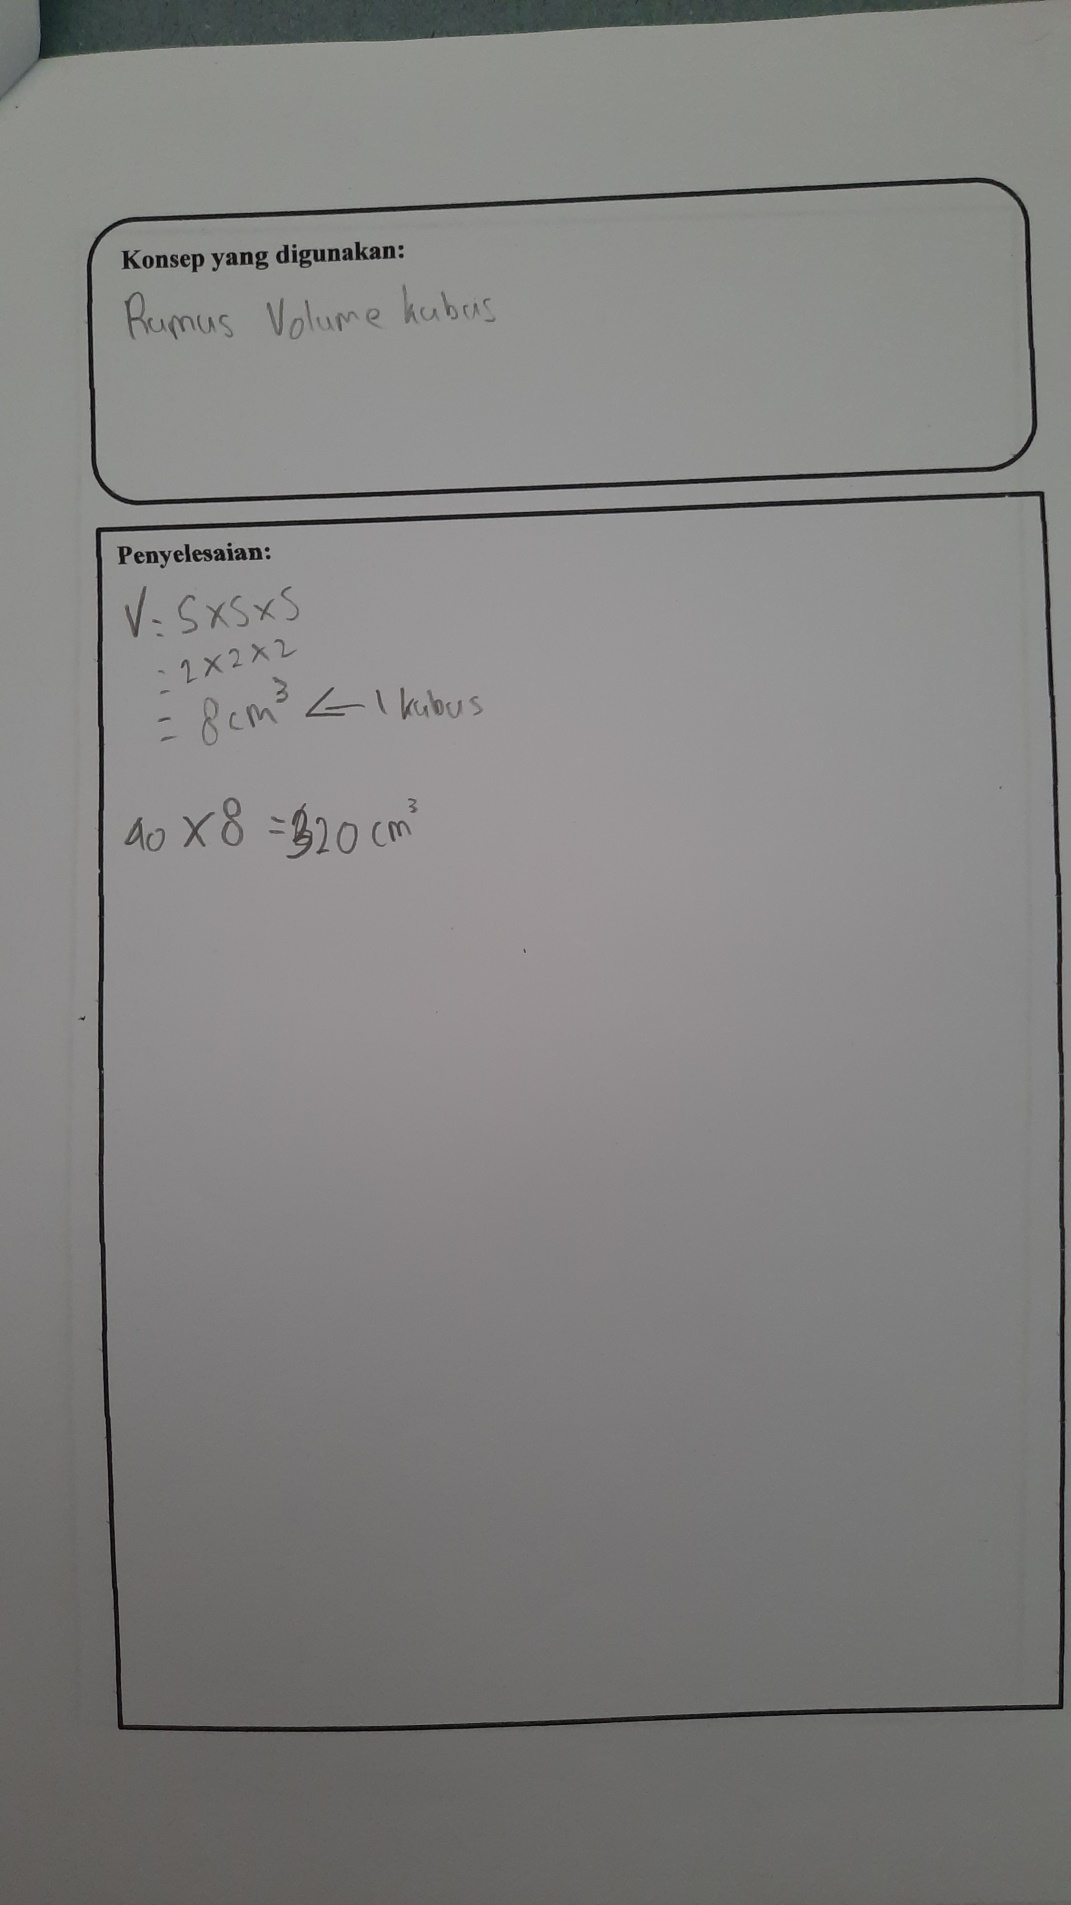 Konsep yang digunakan:
Rumus Volume kubus
Penyelesaian:
V = S x S x S
= 2 x 2 x 2
= 8 cm³ ← 1 kubus
40 x 8 = 320 cm³